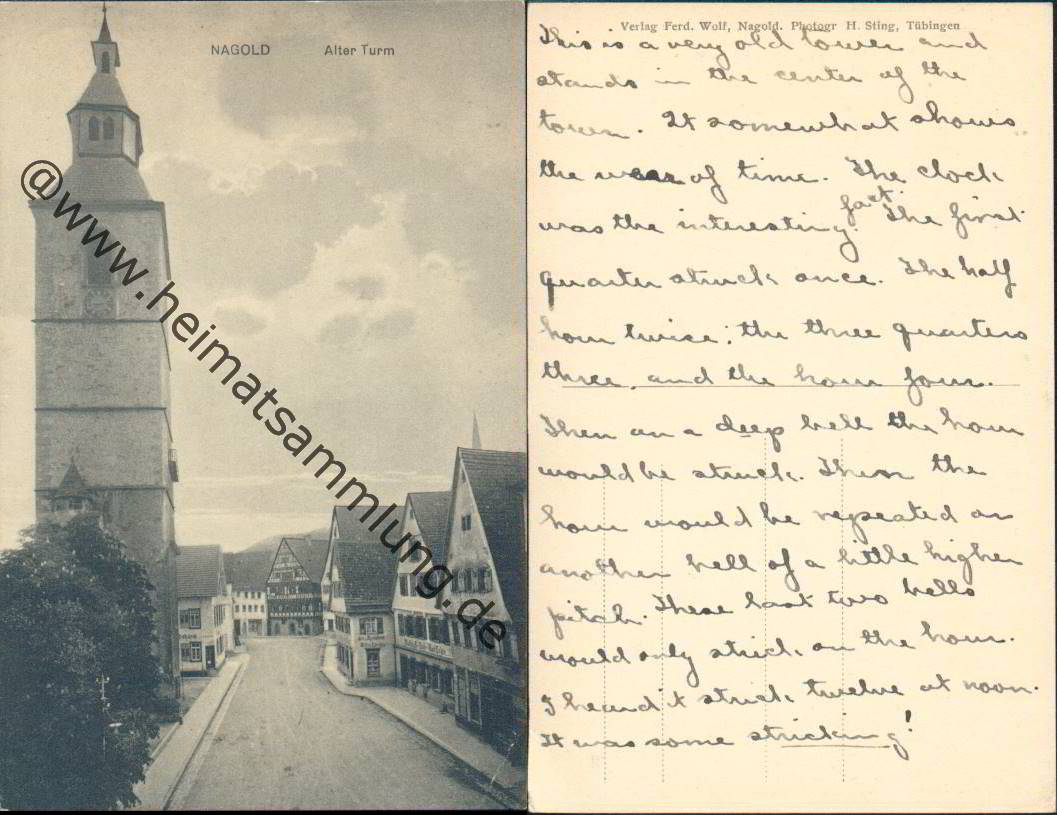 NAGOLD Alter Turm
@www.heimatsammlung.de
Verlag Ferd. Wolf, Nagold. Photogr H. Sting, Tübingen
This is a very old tower and
stands in the center of the
town. It somewhat shows
the wear of time. The clock
was the interesting fact. The first
quarter struck once. The half
hour twice; the three quarters
three, and the hour four.
Then on a deep bell the hour
would be struck. Then the
hour would be repeated on
another bell of a little higher
pitch. These last two bells
would only strick on the hour.
I heard it strick twelve at noon.
It was some stricking!